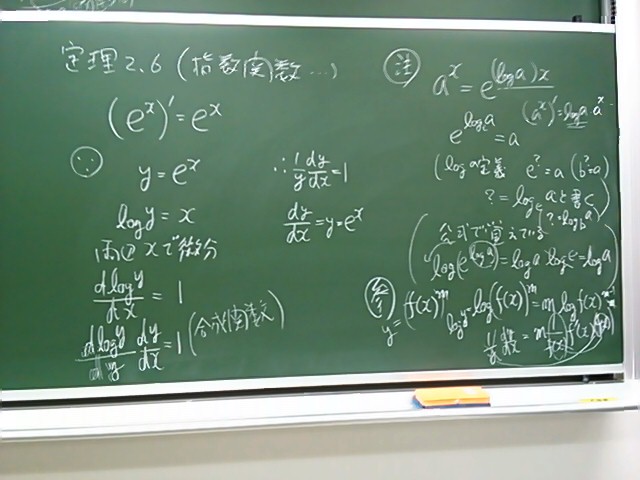 定理2.6 (指数関数…)
(e^x)' = e^x
∵
y = e^x
log y = x
両辺xで微分
d log y / dx = 1
d log y / dy dy/dx = 1 (合成関数)
∴ 1/y dy/dx = 1
dy/dx = y = e^x
注
a^x = e^{(log a)x}
(a^x)' = log a · a^x
e^{log_e a} = a
(log aの定義 e^? = a (b^? = a)
? = log_e aと書く)
? = log_b a
公式で覚えている
log(e^{log a}) = log a log e = log a
参
y = (f(x))^m
log y = log(f(x))^m = m log f(x)
1/y dy/dx = m 1/f(x) f'(x)